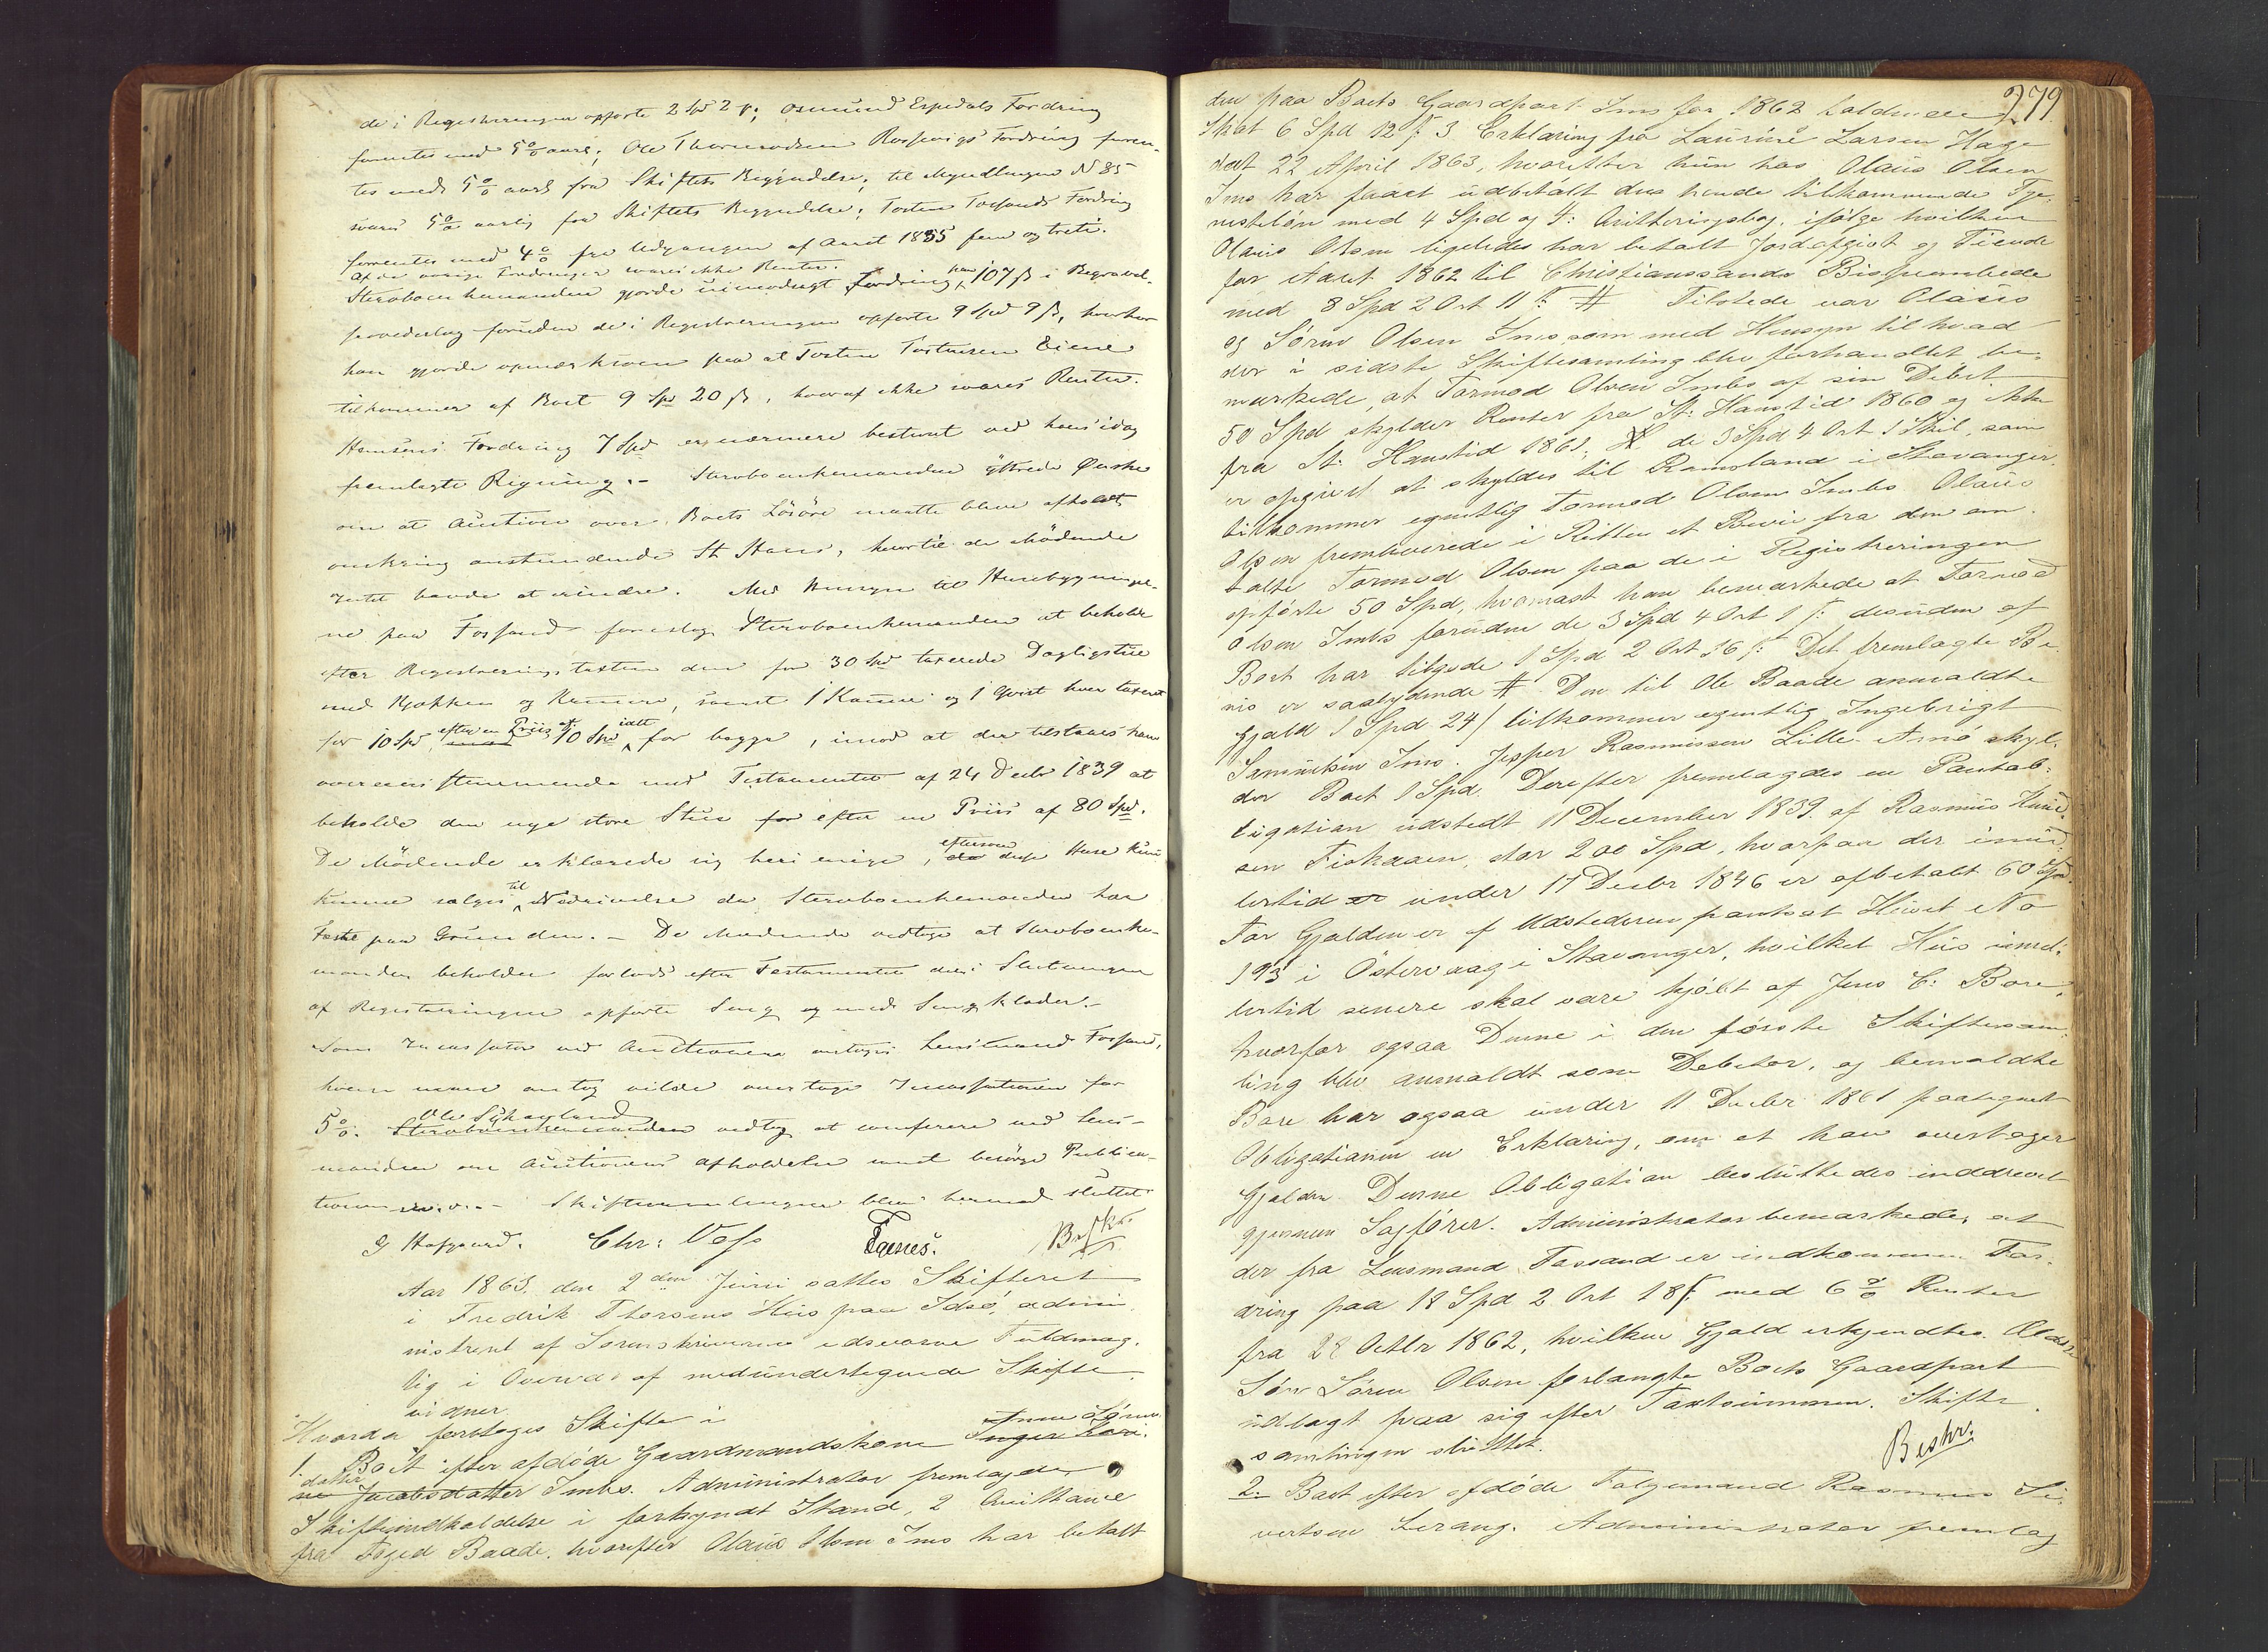 de i Registreringen opførte 2 Spd 2 f; Osmund Espedals Fordring
forrentes med 5% aarl; Ole Thormodsen Rossevigs Fordring forren-
tes med 5% aarl fra Skiftets Begyndelse; til Myndlingen N 85
svares 5% aarlig fra Skiftets Begyndelse; Torsten Fosands Fordring
forrentes med 4% fra Udgangen af Aaret 1835 fem og treti.
Af de øvrige Fordringer svares ikke Renter.
Sterboenkemanden gjorde uimodsagt Fordring paa 107 ß i Begravel-
foruden de i Registreringen opførte 9 Spd 9 ß, hvorhos
han gjorde opmærksom paa at Torsten Torstensen Eiene
tilkommer af Boet 9 Spd 20 ß, hvoraf ikke svares Renter.
Hansens Fordring 7 Spd er nærmere bestemt ved hans idag
fremlagte Regning. - Sterboenkemanden yttrede Ønske
om at Auction over Boets Løsøre maatte blive afholdt
omkring anstundende St Hans, hvortil de Mødende
Intet havde at erindre. Med Hensyn til Husebygninger-
ne paa Fossand foreslog Sterboenkemanden at beholde
efter Registreringstaxten den for 30 Spd taxerede Dagligstue
med Kjøkken og Kammer, samt 1 Kammer og 1 Qvist hver taxeret
for 10 Spd efter en Priis af 10 Spd ialt for begge, imod at der tilstaaes ham
overeensstemmende med Testamentet af 24 Decbr 1839 at
beholde den nye store Stue for efter en Priis af 80 Spd.
De Mødende erklærede sig heri enige, eftersom da disse Huse kun
kunne sælges til Nedrivelse da Sterboenkemanden har
Fæste paa Grunden. - De Mødende vedtoge at Sterboenke-
manden beholder forlods efter Testamentet den i Slutningen
af Registreringen opførte Seng med Sengklæder. -
Som Incassator ved Auctionen antoges Lensmand Fossand,
hvem man antog vilde overtage Incassationen for
5%. Ole Sikveland Sterboenkemanden vedtog at conferere med Lens-
manden om Auctionens Afholdelse samt besørge Publica-
tionen m.v. - Skiftesamlingen blev hermed sluttet
G Hofgaard. Chr: Voss Faenes. Beskr.
Aar 1863 den 2den Juni sattes Skifteret
i Fredrik Thorsens Huus paa Idsø, admini-
nistreret af Sorenskriverens edsvorne Fuldmæg-
tig i Overvær af medundertegnede Skifte-
vidner
Hvorda foretoges Skifte i
1. Boet efter afdøde Gaardmandskone Anne Søren- Inger Lovi-
datter ne Jacobsdatter Imbs. Administrator fremlagde
Skifteindkaldelse i forkyndt Stand, 2 Quittance
fra Foged Baade, hvorefter Olaus Olsen Ims har betalt
279
den paa Boets Gaardpart Ims for 1862 faldende
Skat 6 Spd 12 ß: 3 Erklæring fra Laurine Larsen Hage
dat 22 April 1863, hvorefter hun hos Olaus Olsen
Ims har faaet udbetalt den hende tilkommende Tje-
nesteløn med 4 Spd og 4: Quitteringsbog, ifølge hvilken
Olaus Olsen ligeledes har betalt Jordafgivt og Tiende
for Aaret 1862 til Christianssands Bispeembede
med 8 Spd 2 Ort 11 ß. # Tilstede var Olaus
og Søren Olsen Ims, som med Hensyn til hvad
der i sidste Skiftesamling blev forhandlet be-
mærkede, at Tormod Olsen Imbs af sin Debet
50 Spd skylder Renter fra St: Hanstid 1860 og ikke
fra St: Hanstid 1861; de 3 Spd 4 Ort 1 Skil, som
er opgivet at skyldes til Ramsland i Stavanger,
tilkommer egentlig Tormod Olsen Imbs. Olaus
Olsen fremleverede i Retten et Bevis fra den om-
talte Tormod Olsen paa de i Registreringen
opførte 50 Spd, hvornæst han bemærkede at Tormod
Olsen Imbs foruden de 3 Spd 4 Ort 1 ß: desuden af
Boet har tilgode 1 Spd 2 Ort 16 ß: Det fremlagte Be-
vis er saalydende #. Den til Ole Baade anmeldte
Gjæld 1 Spd 24 ß tilkommer egentlig Ingebrigt
Samuelsen Ims. Jesper Rasmussen Lille-Amø skyl-
der Boet 1 Spd. Derefter fremlagdes en Pantob-
ligation udstedt 11 December 1839 af Rasmus Knud-
sen Fiskaaen, stor 200 Spd, hvorpaa der imid-
lertid er under 17 Decbr 1846 er afbetalt 60 Spd.
For Gjælden er af Udstederen pantsat Huset No
193 i Østervaag i Stavanger, hvilket Huus imid-
lertid senere skal være kjøbt af Jens C: Bore,
hvorfor ogsaa Denne i den første Skiftesam-
ling blev anmeldt som Debitor, og bemeldte
Bore har ogsaa under 11 Decbr 1861 paategnet
Obligationen en Erklæring, om at han overtager
Gjælden. Denne Obligation besluttedes inddrevet
gjennem Sagfører. Administrator bemærkede, at
der fra Lensmand Fossand er indkommen For-
dring paa 18 Spd 2 Ort 18 ß: med 6% Renter
fra 28 Octbr 1862, hvilken Gjæld erkjendtes. Ældste
Søn Søren Olsen forlangte Boets Gaardpart
udlagt paa sig efter Taxtsummen. Skifte-
samlingen sluttet.
Beskr:
2. Boet efter afdøde Følgemand Rasmus Si-
vertsen Lerang. Administrator fremlag